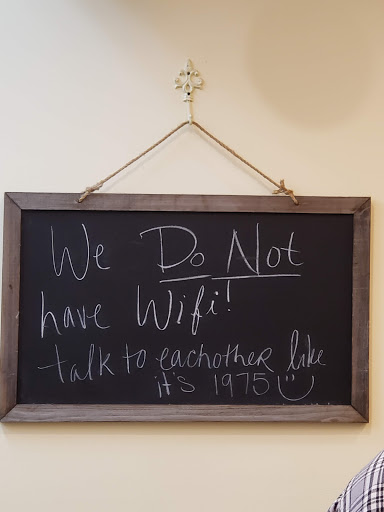 We Do Not
have Wifi!
talk to eachother like
it's 1975